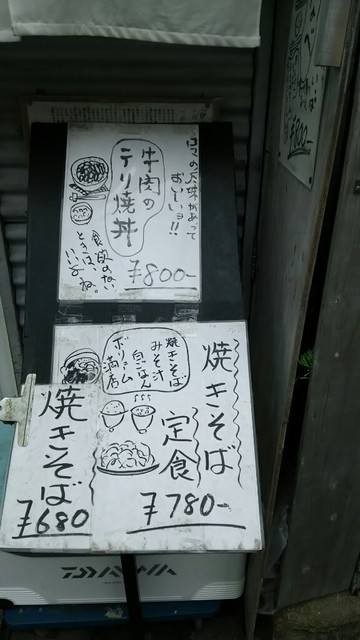 ゴマの風味があって
おいしいョ!!
牛肉の
テリ焼丼
食欲のない
ときは、
いいよ、ね。
¥800-
焼きそば
定食
焼きそば
みそ汁
白ごはん
ボリューム
満点
¥780-
焼きそば
¥680
DAIWA
¥800-